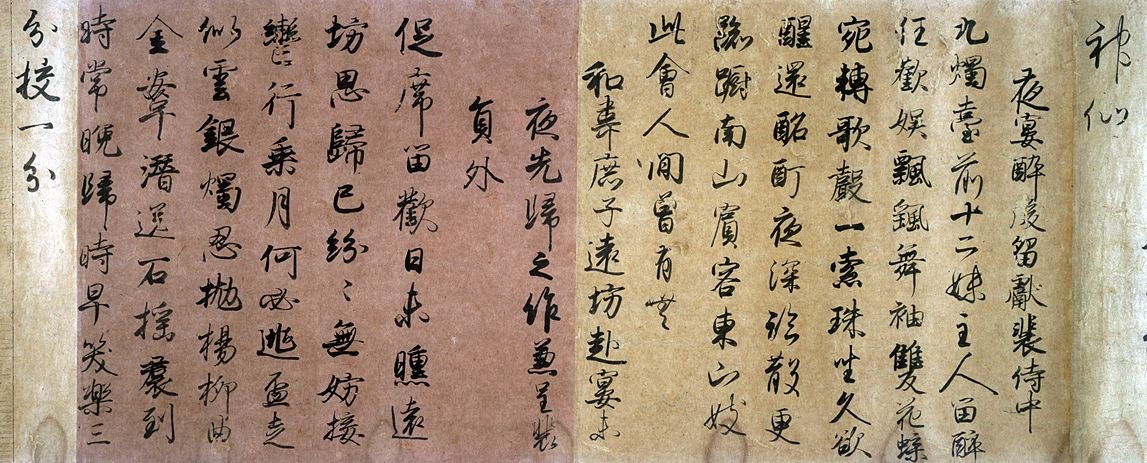 神仙
夜宴醉後留獻裴侍中
九燭臺前十二姝主人留醉
任歡娛飄颻舞袖雙飛蝶
宛轉歌聲一索珠坐久欲
醒還酩酊夜深臨散更
踟躕南山賓客東山妓
此會人間曾有無
和韋庶子遠坊赴宴未
夜先歸之作兼呈裴
員外
促席留歡日未曛遠
坊思歸已紛〻無妨按
轡行乘月何必逃盃走
似雲銀燭忍拋楊柳曲
金鞍潛送石榴裠到
時常晚歸時早笑樂三
分挍一分